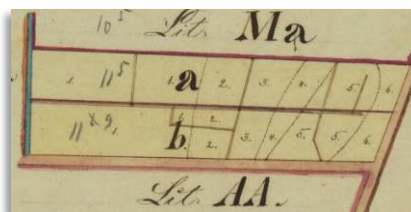 10⁵ Lit. Ma
1. 11⁵ 1. a 2. 3. 4. 5. 6.
11 x 9, b. 2. 2. 3. 4. 5. 5. 6.
Lit. AA.